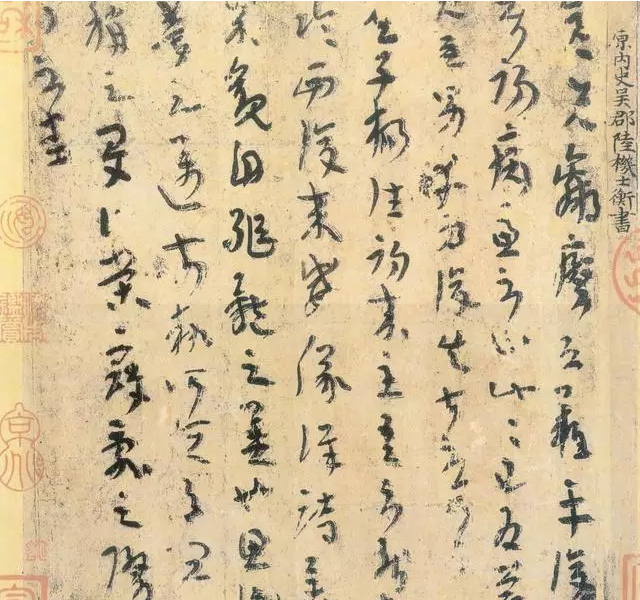 原内史吳郡陸機士衡書
先羸瘵恐難平復
初病慮不止此〻已為慶
唯男幸為復失前憂耳
吳子楊往初來主吾不能
臨西復來威儀詳跱舉
成觀自軀體之美也思識
量之邁前執所恒有宜
稱之夏伯榮寇亂之際
問不悉